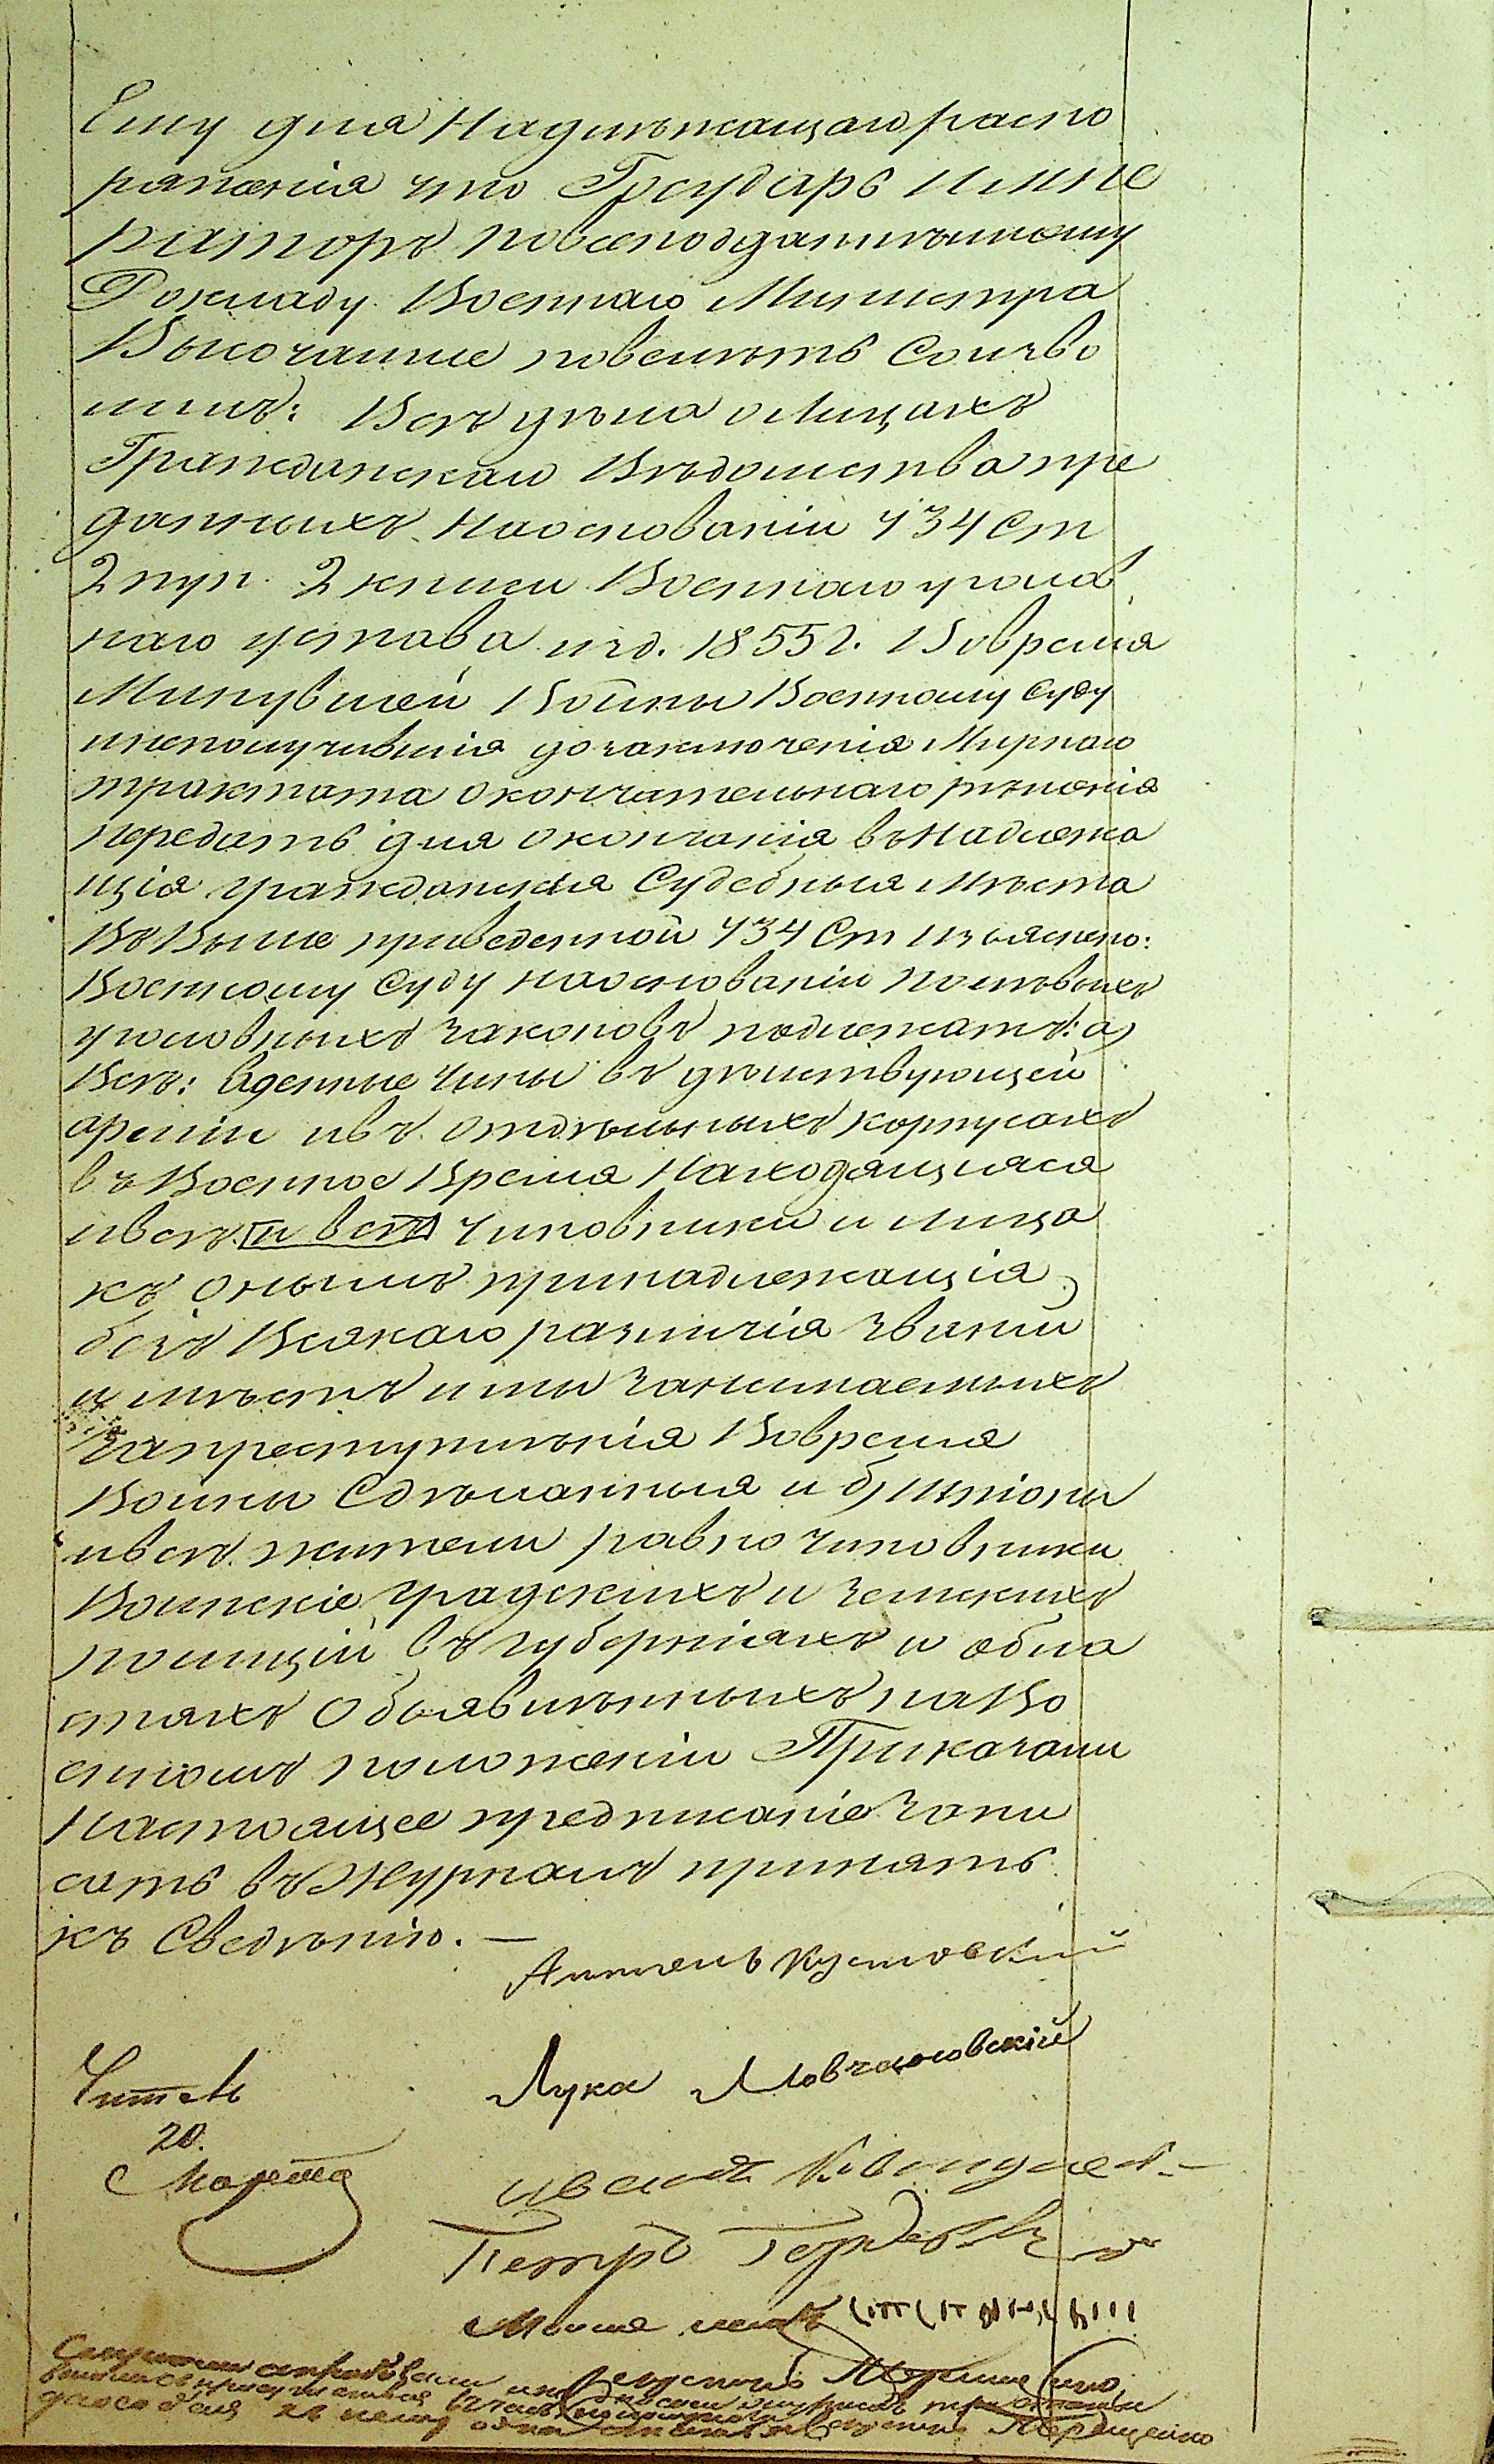 Ему для Надлѣжащаго распо
ряженія что Государь Импе
раторъ повсеподданнѣйшему
Докладу Военнаго Министра
Высочайше повелѣть Соизво
лилъ: Всѣ дѣла о Лицахъ
Гражданскаго Вѣдомства пре
данныхъ Наоснованіи 434 Ст
2 пун. 2 книги Военнаго уголов
наго устава изд. 1855 г. Вовремя
Минувшей Войны Военному Суду
инеполучившія дозаключенія Мирнаго
трактата окончательнаго рѣшенія
передать для окончанія въНадлежа
щія гражданскія Судебныя Мѣста
ВъВыше приведенной 434 Ст изъяснено:
Военному Суду наоснованіи полѣвыхъ
уголовныхъ законовъ подлежатъ: а)
Всѣ: военные чины въ дѣйствующей
арміи ивъ отдѣльныхъ корпусахъ
въ Военное Время Находящіяся
ивсѣ и всѣ Чиновники и лица
къ онымъ принадлежащія
безъ Всякаго различія званій
и мѣстъ ими занимаемыхъ
запреступлѣнія Вовремя
Войны Сдѣланныя и б) шпіоны
ивсѣ жители равно чиновники
Воинскіе градскихъ и земскихъ
полицій въ губерніяхъ и обла
стяхъ Объявлѣнныхъ наВо
енномъ положеніи Приказали
Настоящее предписаніе запи
сать въ Журналъ принять
къ Сведѣнію. —
Лука Мовчановскій
Читал
20.
Марта
Петръ